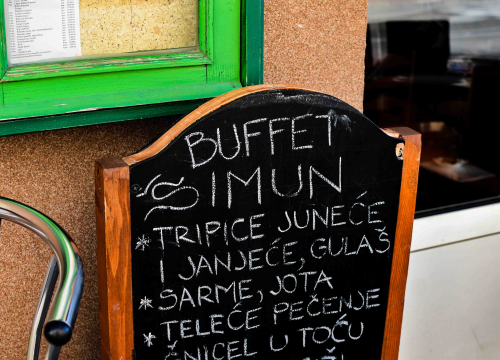 BUFFET
ŠIMUN
* TRIPICE JUNEĆE
I JANJEĆE, GULAŠ
* SARME, JOTA
* TELEĆE PEČENJE
ŠNICEL U TOĆU